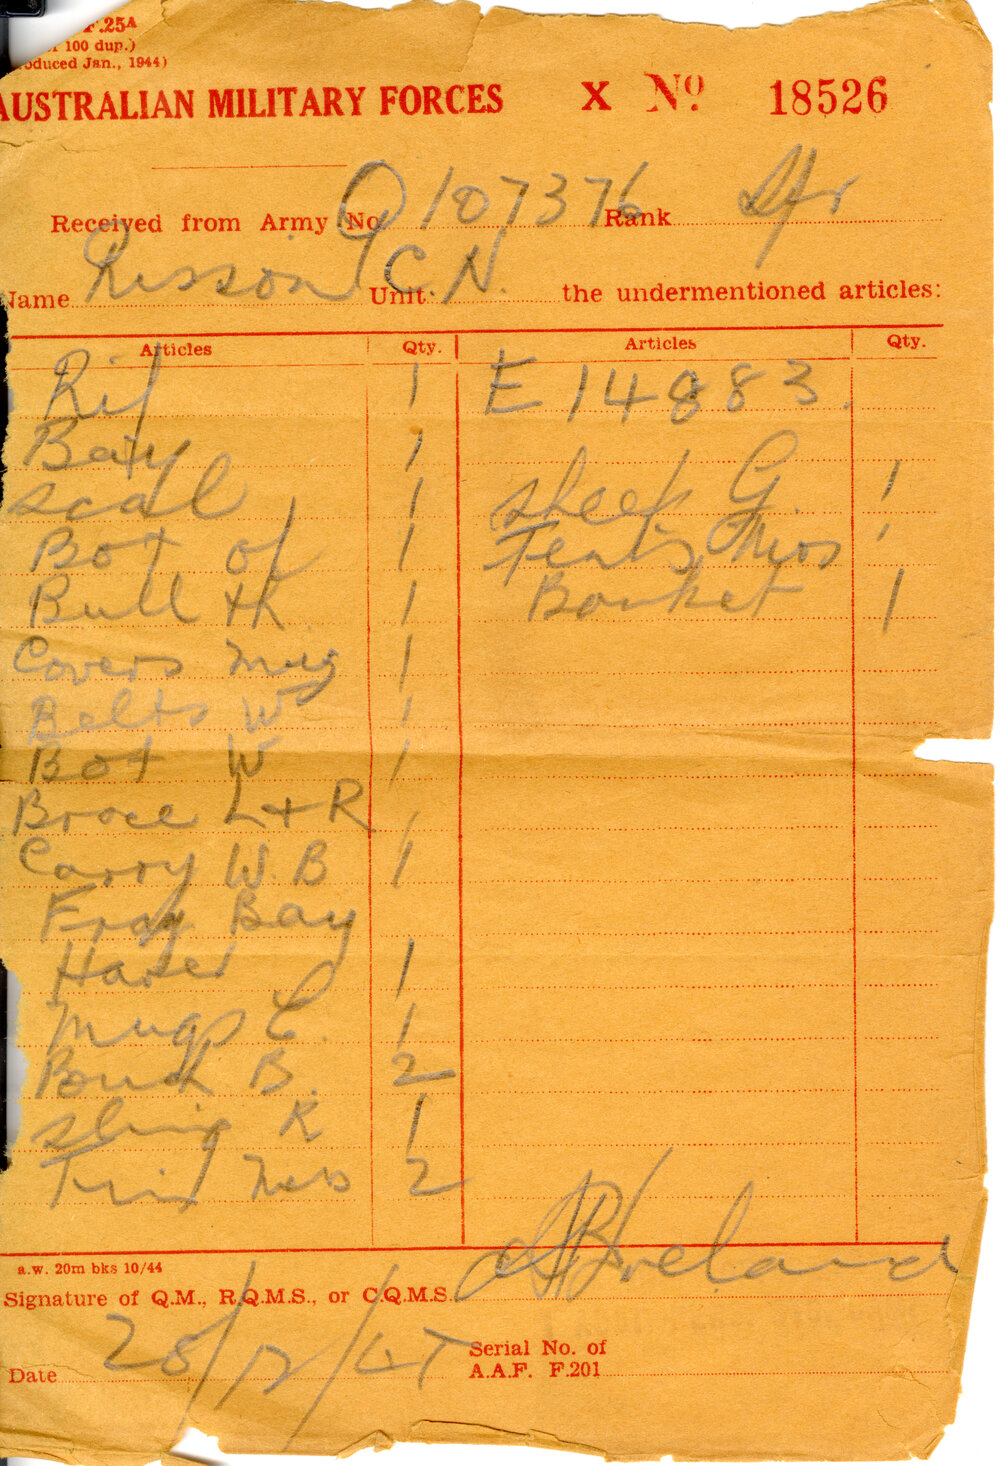 F.25A
100 dup.)
oduced Jan., 1944)
AUSTRALIAN MILITARY FORCES X No. 18526
Received from Army No. Q107376 Rank Sfr
Name Risson C.N. Unit the undermentioned articles:
Articles Qty. Articles Qty.
Rif 1 E 14883.
Bay 1
scab 1 sheep G. 1
Bot of 1 Tents Mos 1
Bull th 1 Bonket 1
Covers Mug 1
Belts W 1
Bot W 1
Brace L+R 1
Carry W.B 1
Frog Bay
Haver 1
Mugs E. 1
Bouch B. 2
Sling R 1
Mess 2
Ireland
a.w. 20m bks 10/44
Signature of Q.M., R.Q.M.S., or C.Q.M.S.
Date 20/12/45
Serial No. of
A.A.F. F.201